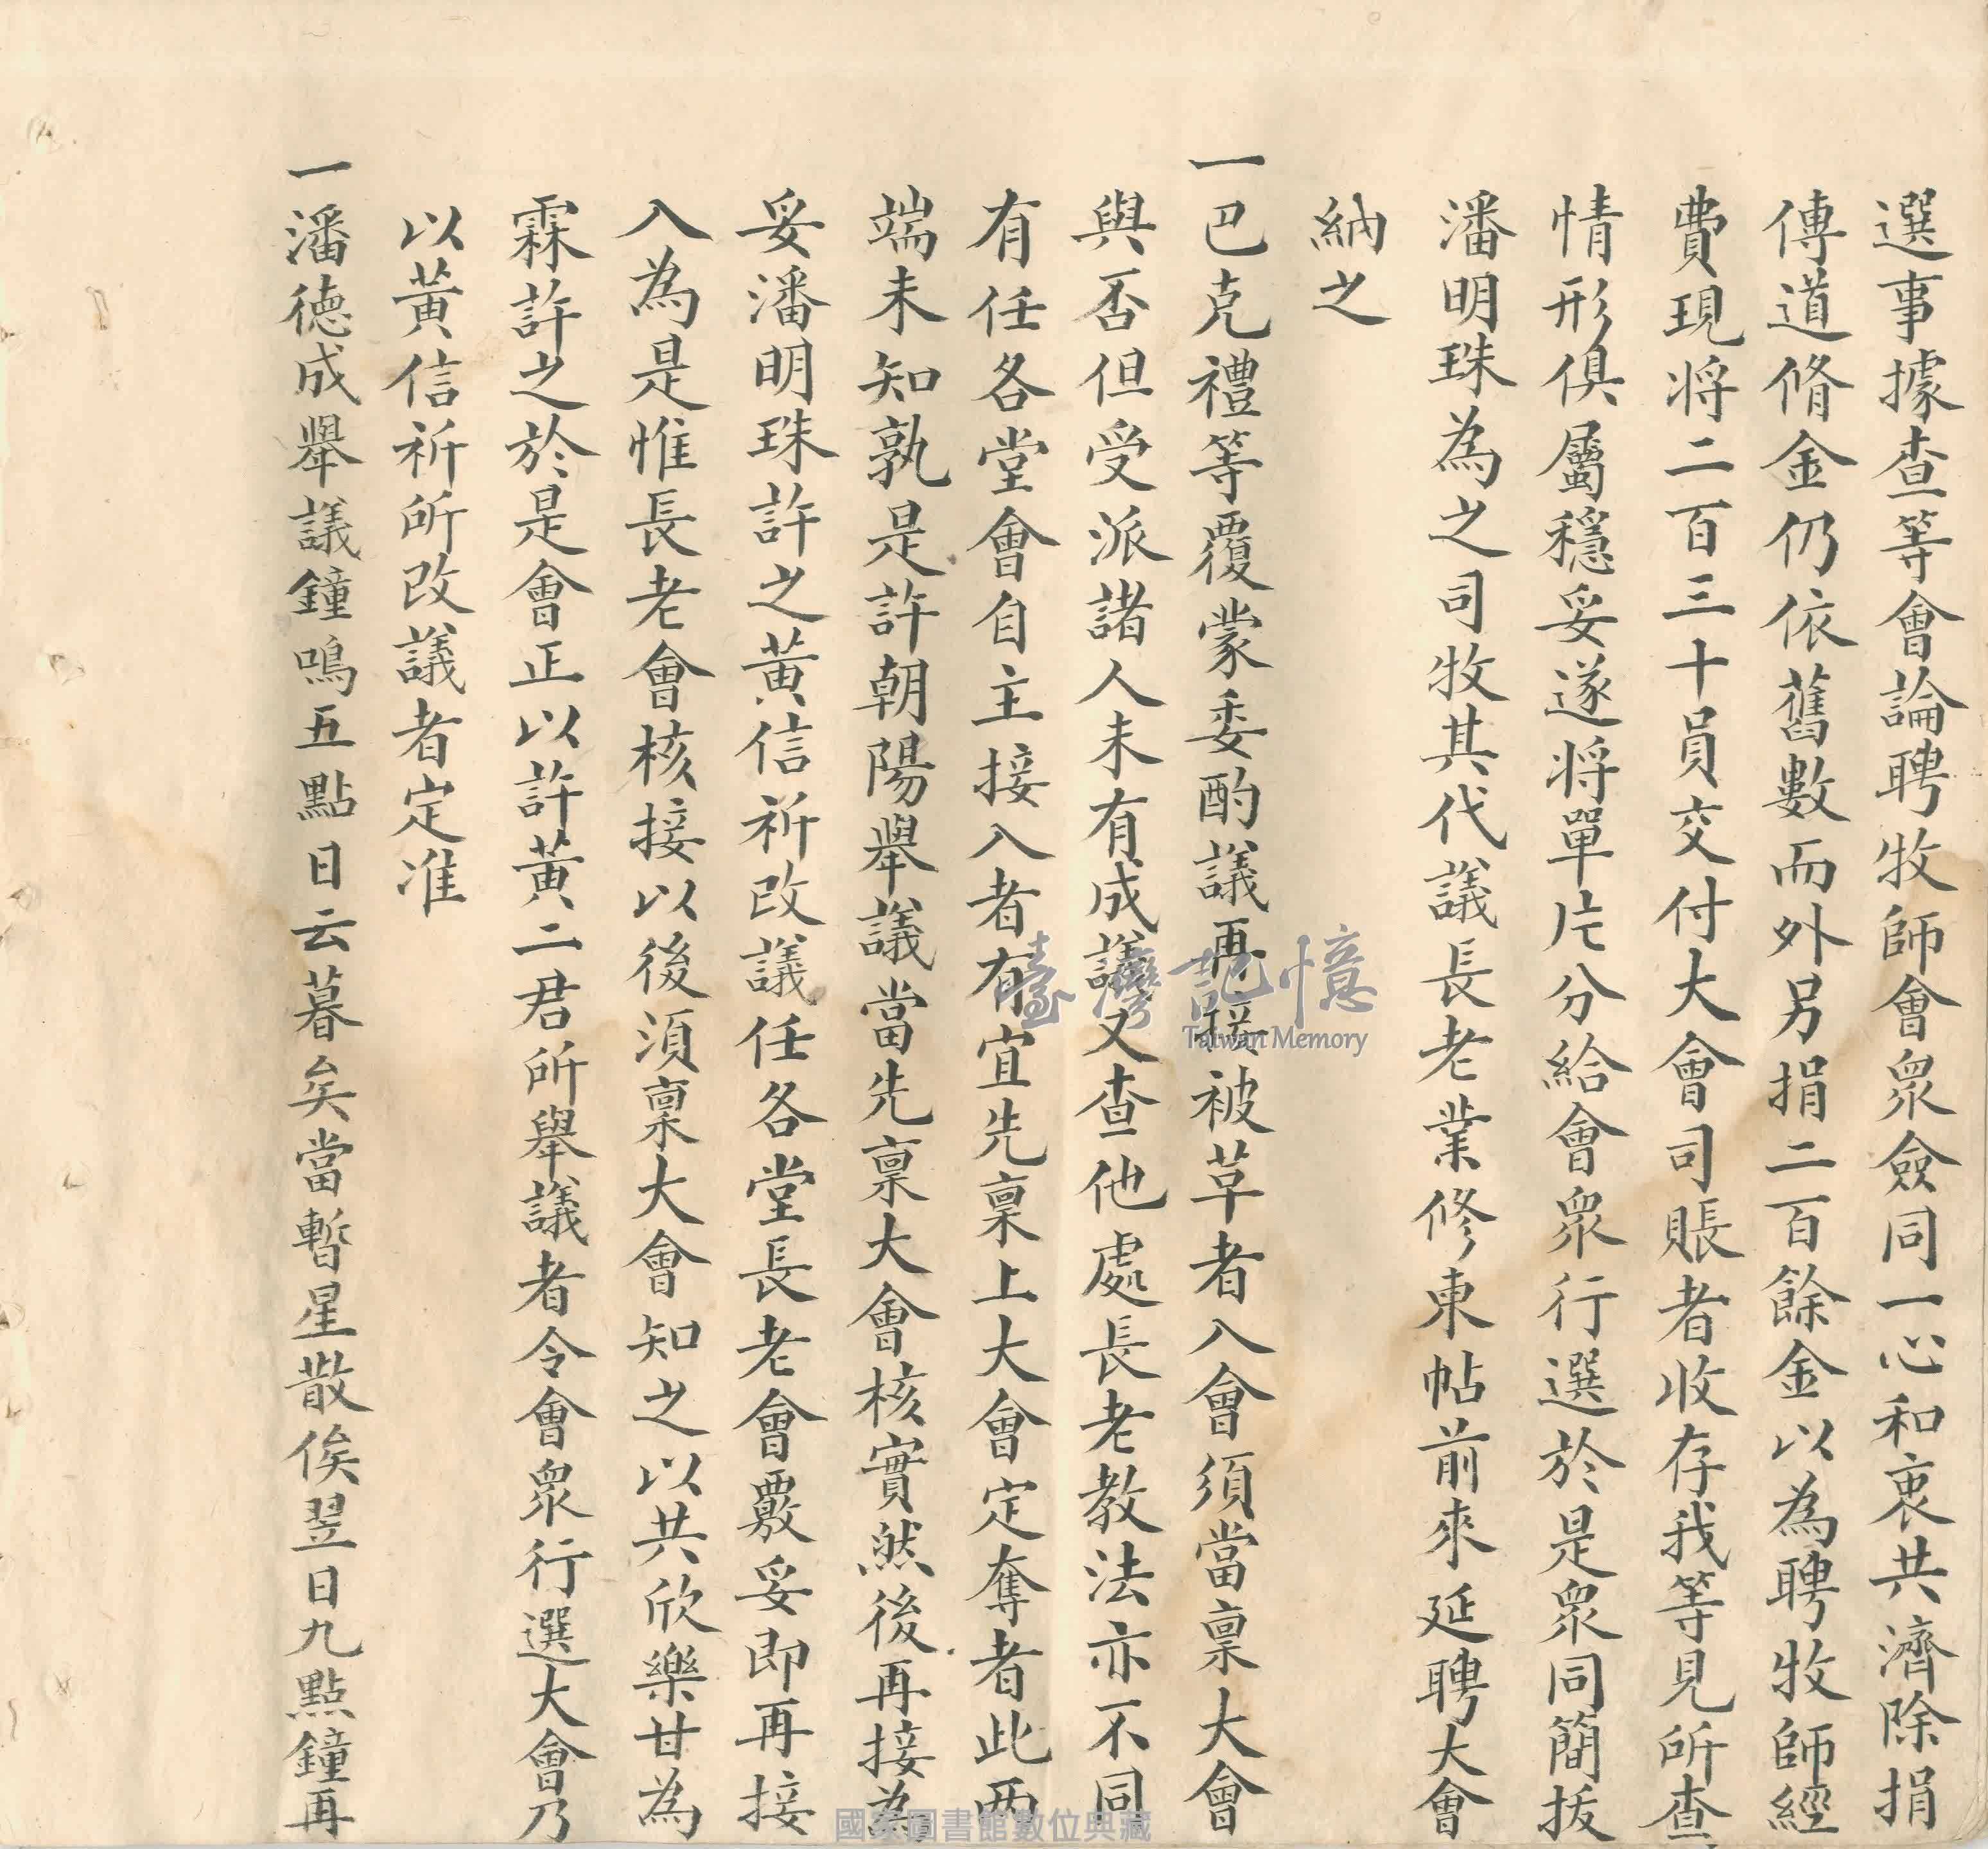 選事據查等會論聘牧師會眾僉同一心和衷共濟除捐
傳道脩金仍依舊數而外另捐二百餘金以為聘牧師經
費現將二百三十員交付大會司賬者收存我等見所查
情形俱屬穩妥遂將單片分給會眾行選於是眾同簡拔
潘明珠為之司牧其代議長老業修東帖前來延聘大會
納之
一巴克禮等覆蒙委酌議再接被革者入會須當稟大會
與否但受派諸人未有成議又查他處長老教法亦不同
有任各堂會自主接入者有宜先稟上大會定奪者此兩
端未知孰是許朝陽舉議當先稟大會核實然後再接為
妥潘明珠許之黃信祈改議任各堂長老會覈妥即再接
入為是惟長老會核接以後須稟大會知之以共欣樂甘為
霖許之於是會正以許黃二君所舉議者令會眾行選大會乃
以黃信祈所改議者定准
一潘德成舉議鐘鳴五點日云暮矣當暫星散俟翌日九點鐘再
臺灣記憶
Taiwan Memory
國家圖書館數位典藏